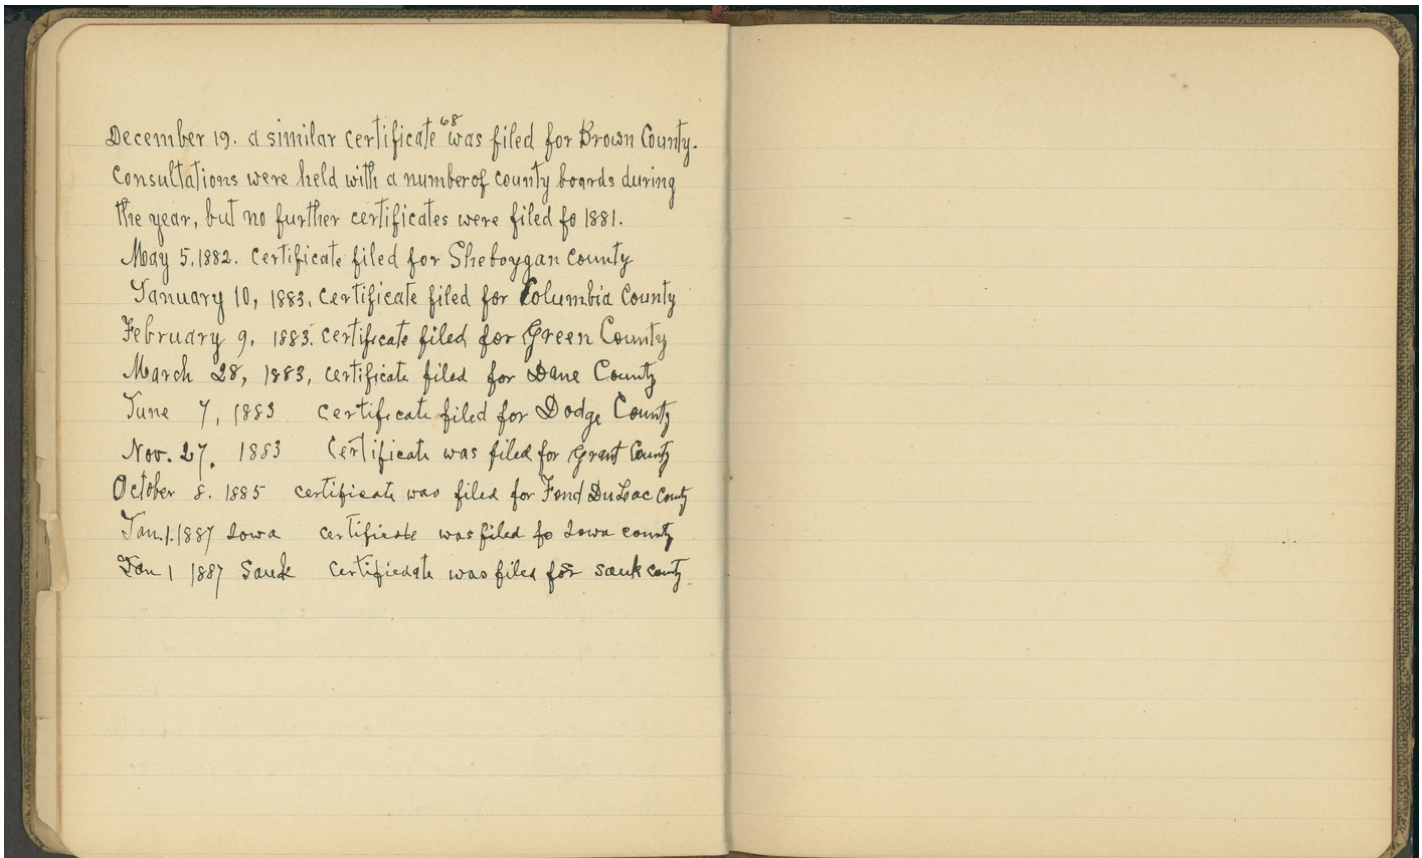 December 19. a similar certificate 68 was filed for Brown County.
Consultations were held with a numberof county boards during
the year, but no further certificates were filed fo 1881.
May 5, 1882. Certificate filed for Sheboygan County
January 10, 1883, certificate filed for Columbia County
February 9, 1883. certificate filed for Green County
March 28, 1883, certificate filed for Dane County
June 7, 1883 certificate filed for Dodge County
Nov. 27. 1883 Certificate was filed for Grant County
October 8. 1885 certificate was filed for Fond DuLac County
Jan. 1. 1887 Iowa certificate was filed fo Iowa county
Jan 1 1887 Sauk certificate was filed for Sauk county